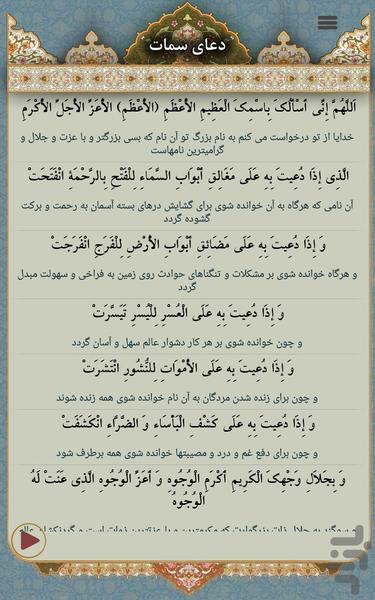 دعای سمات
اَللّهُمَّ اِنِّی اَسْاَلُکَ بِاسْمِکَ الْعَظیمِ الْأَعْظَمِ (الْأَعْظَمِ) الْأَعَزِّ الْأَجَلِّ الْأَکْرَمِ
خدایا از تو درخواست می کنم به نام بزرگ تو آن نام که بسی بزرگتر و با عزت و جلال و
گرامیترین نامهاست
الَّذِی إِذَا دُعِیتَ بِهِ عَلَی مَغَالِقِ أَبْوَابِ السَّمَاءِ لِلْفَتْحِ بِالرَّحْمَةِ انْفَتَحَتْ
آن نامی که هرگاه به آن خوانده شوی برای گشایش درهای بسته آسمان به رحمت و برکت
گشوده گردد
وَ إِذَا دُعِیتَ بِهِ عَلَی مَضَائِقِ أَبْوَابِ الْأَرْضِ لِلْفَرَجِ انْفَرَجَتْ
و هرگاه خوانده شوی بر مشکلات و تنگناهای حوادث روی زمین به فراخی و سهولت مبدل
گردد
وَ إِذَا دُعِیتَ بِهِ عَلَی الْعُسْرِ لِلْیُسْرِ تَیَسَّرَتْ
و چون خوانده شوی بر هر کار دشوار عالم سهل و آسان گردد
وَ إِذَا دُعِیتَ بِهِ عَلَی الْأَمْوَاتِ لِلنُّشُورِ انْتَشَرَتْ
و چون برای زنده شدن مردگان به آن نام خوانده شوی همه زنده شوند
وَ إِذَا دُعِیتَ بِهِ عَلَی کَشْفِ الْبَأْسَاءِ وَ الضَّرَّاءِ انْکَشَفَتْ
و چون برای دفع غم و درد و مصیبتها خوانده شوی همه برطرف شود
وَ بِجَلَالِ وَجْهِکَ الْکَرِیمِ أَکْرَمِ الْوُجُوهِ وَ أَعَزِّ الْوُجُوهِ الَّذِی عَنَتْ لَهُ
الْوُجُوهُ
بازار